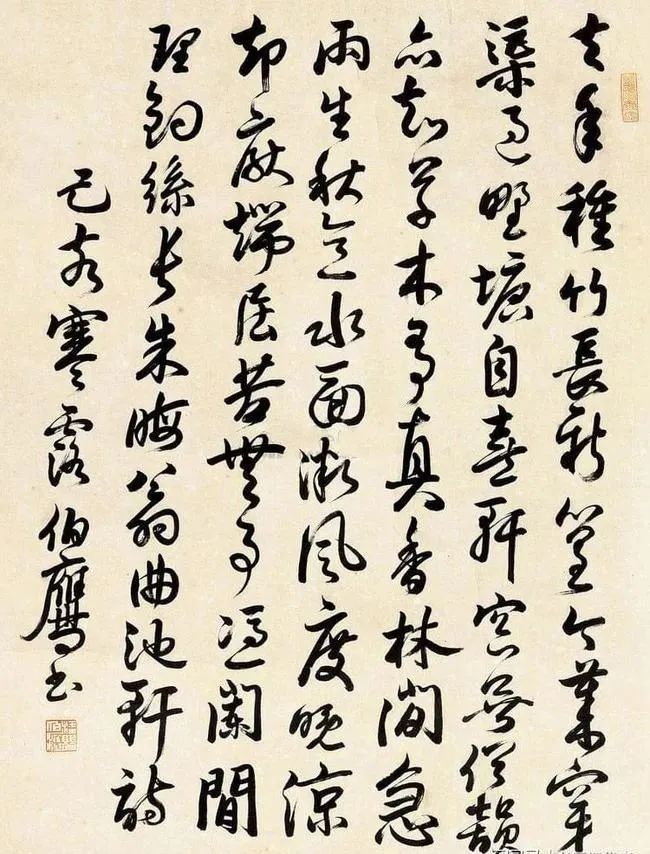 去年種竹長新篁今歲穿
渠過野塘自喜軒窗無俗韻
亦知草木有真香林間急
雨生秋意水面微風度晚涼
却厭端居苦無事憑闌間
理釣絲長朱晦翁曲池軒詩
己亥寒露伯鷹書